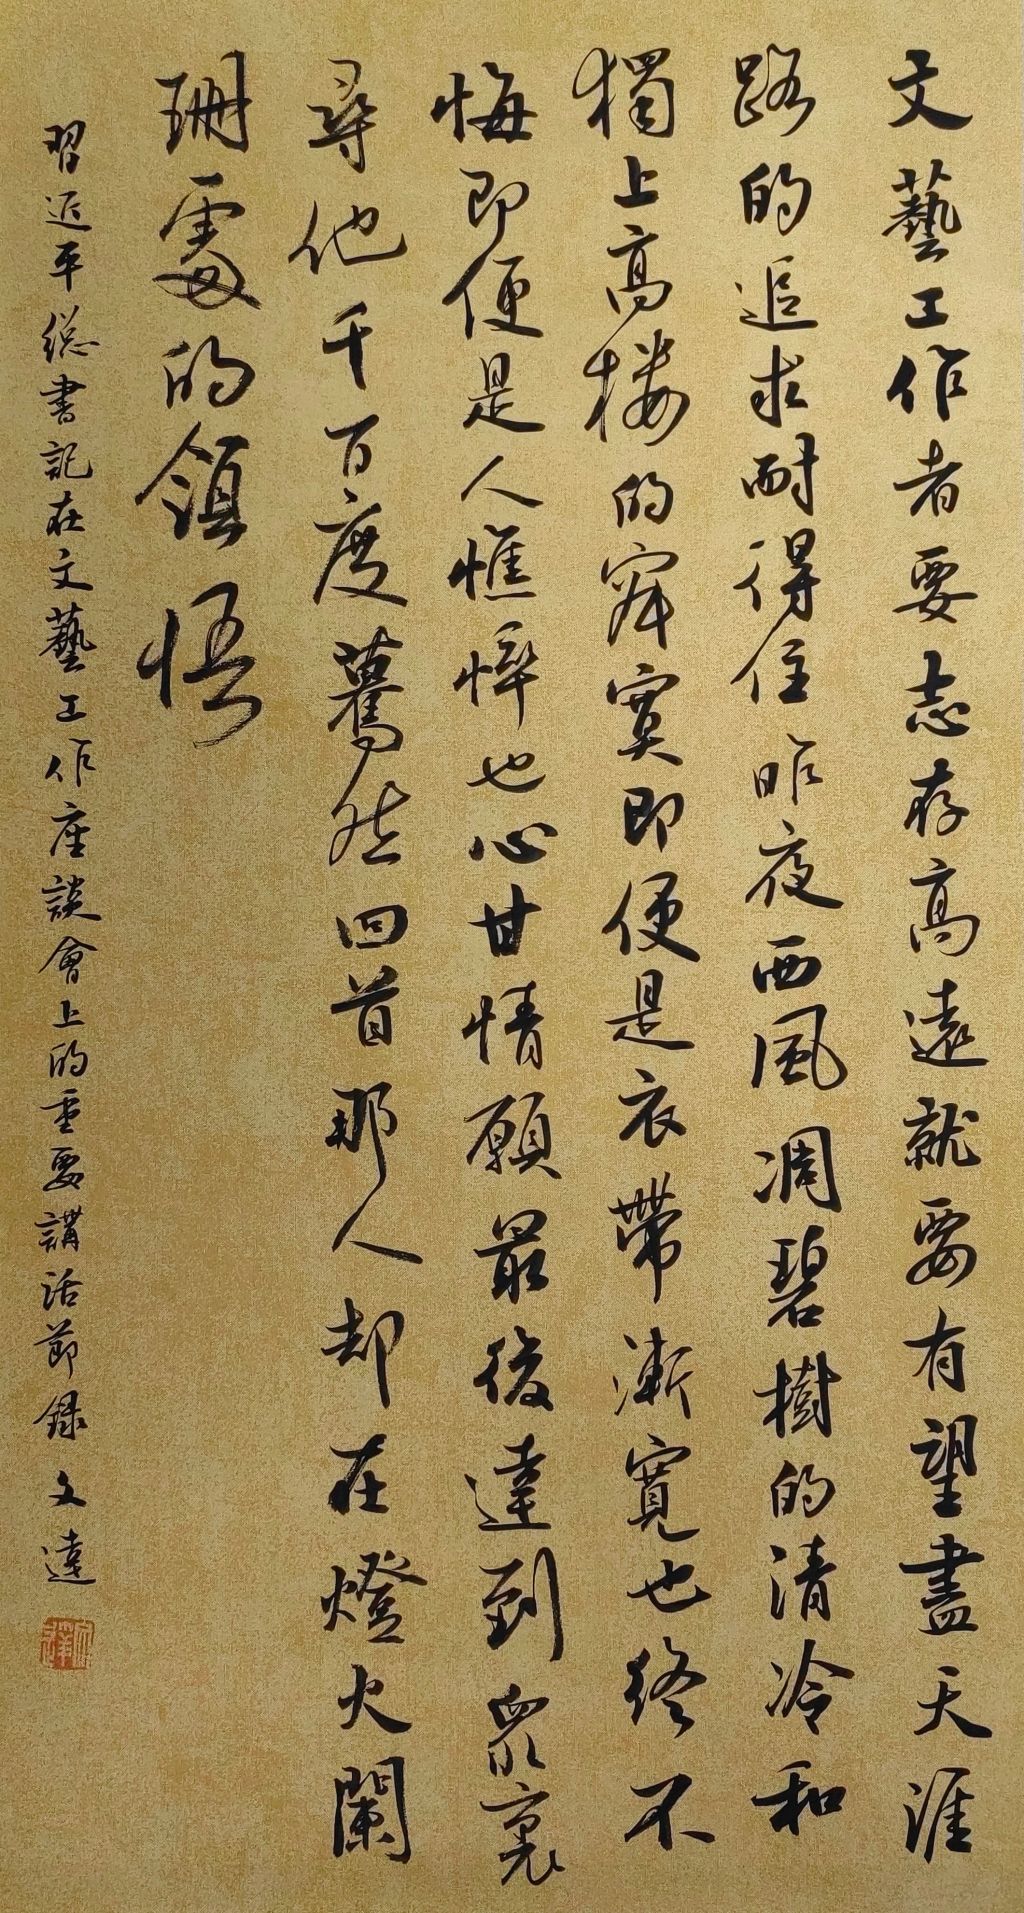 文藝工作者要志存高遠就要有望盡天涯
路的追求耐得住昨夜西風凋碧樹的清冷和
獨上高樓的寂寞即便是衣帶漸寬也終不
悔即便是人憔悴也心甘情願最後達到眾裏
尋他千百度驀然回首那人却在燈火闌
珊處的領悟
習近平總書記在文藝工作座談會上的重要講話節録 文達